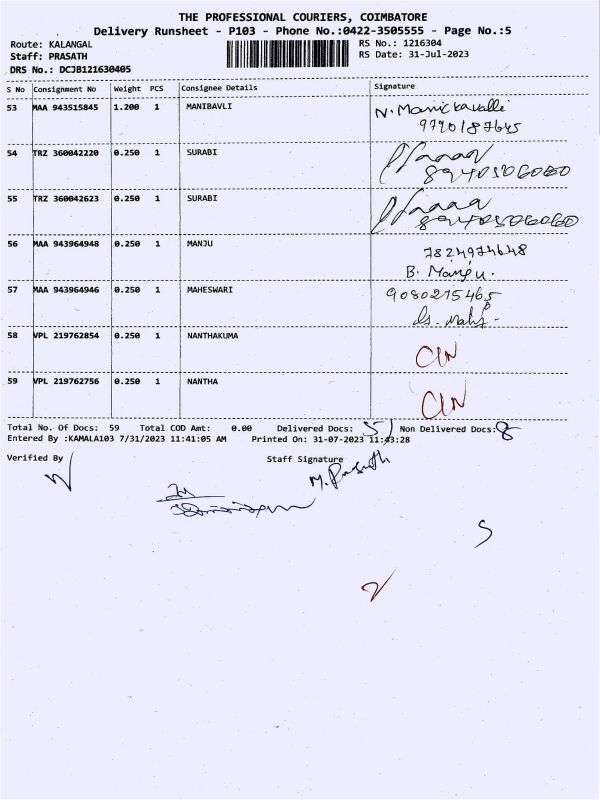 THE PROFESSIONAL COURIERS, COIMBATORE
Delivery Runsheet - P103 - Phone No.:0422-3505555 - Page No.:5
Route: KALANGAL RS No.: 1216304
Staff: PRASATH RS Date: 31-Jul-2023
DRS No.: DCJB121630405
S No Consignment No Weight PCS Consignee Details Signature
53 MAA 943515845 1.200 1 MANIBAVLI N. Manickavalli
54 TRZ 360042220 0.250 1 SURABI
8940506060
55 TRZ 360042623 0.250 1 SURABI
56 MAA 943964948 0.250 1 MANJU 7824974648
B. Manju.
57 MAA 943964946 0.250 1 MAHESWARI 9080275465
58 VPL 219762854 0.250 1 NANTHAKUMA
59 VPL 219762756 0.250 1 NANTHA
Total No. Of Docs: 59 Total COD Amt: 0.00 Delivered Docs: 51 Non Delivered Docs: 8
Entered By :KAMALA103 7/31/2023 11:41:05 AM Printed On: 31-07-2023 11:43:28
Verified By Staff Signature
M. Prasath